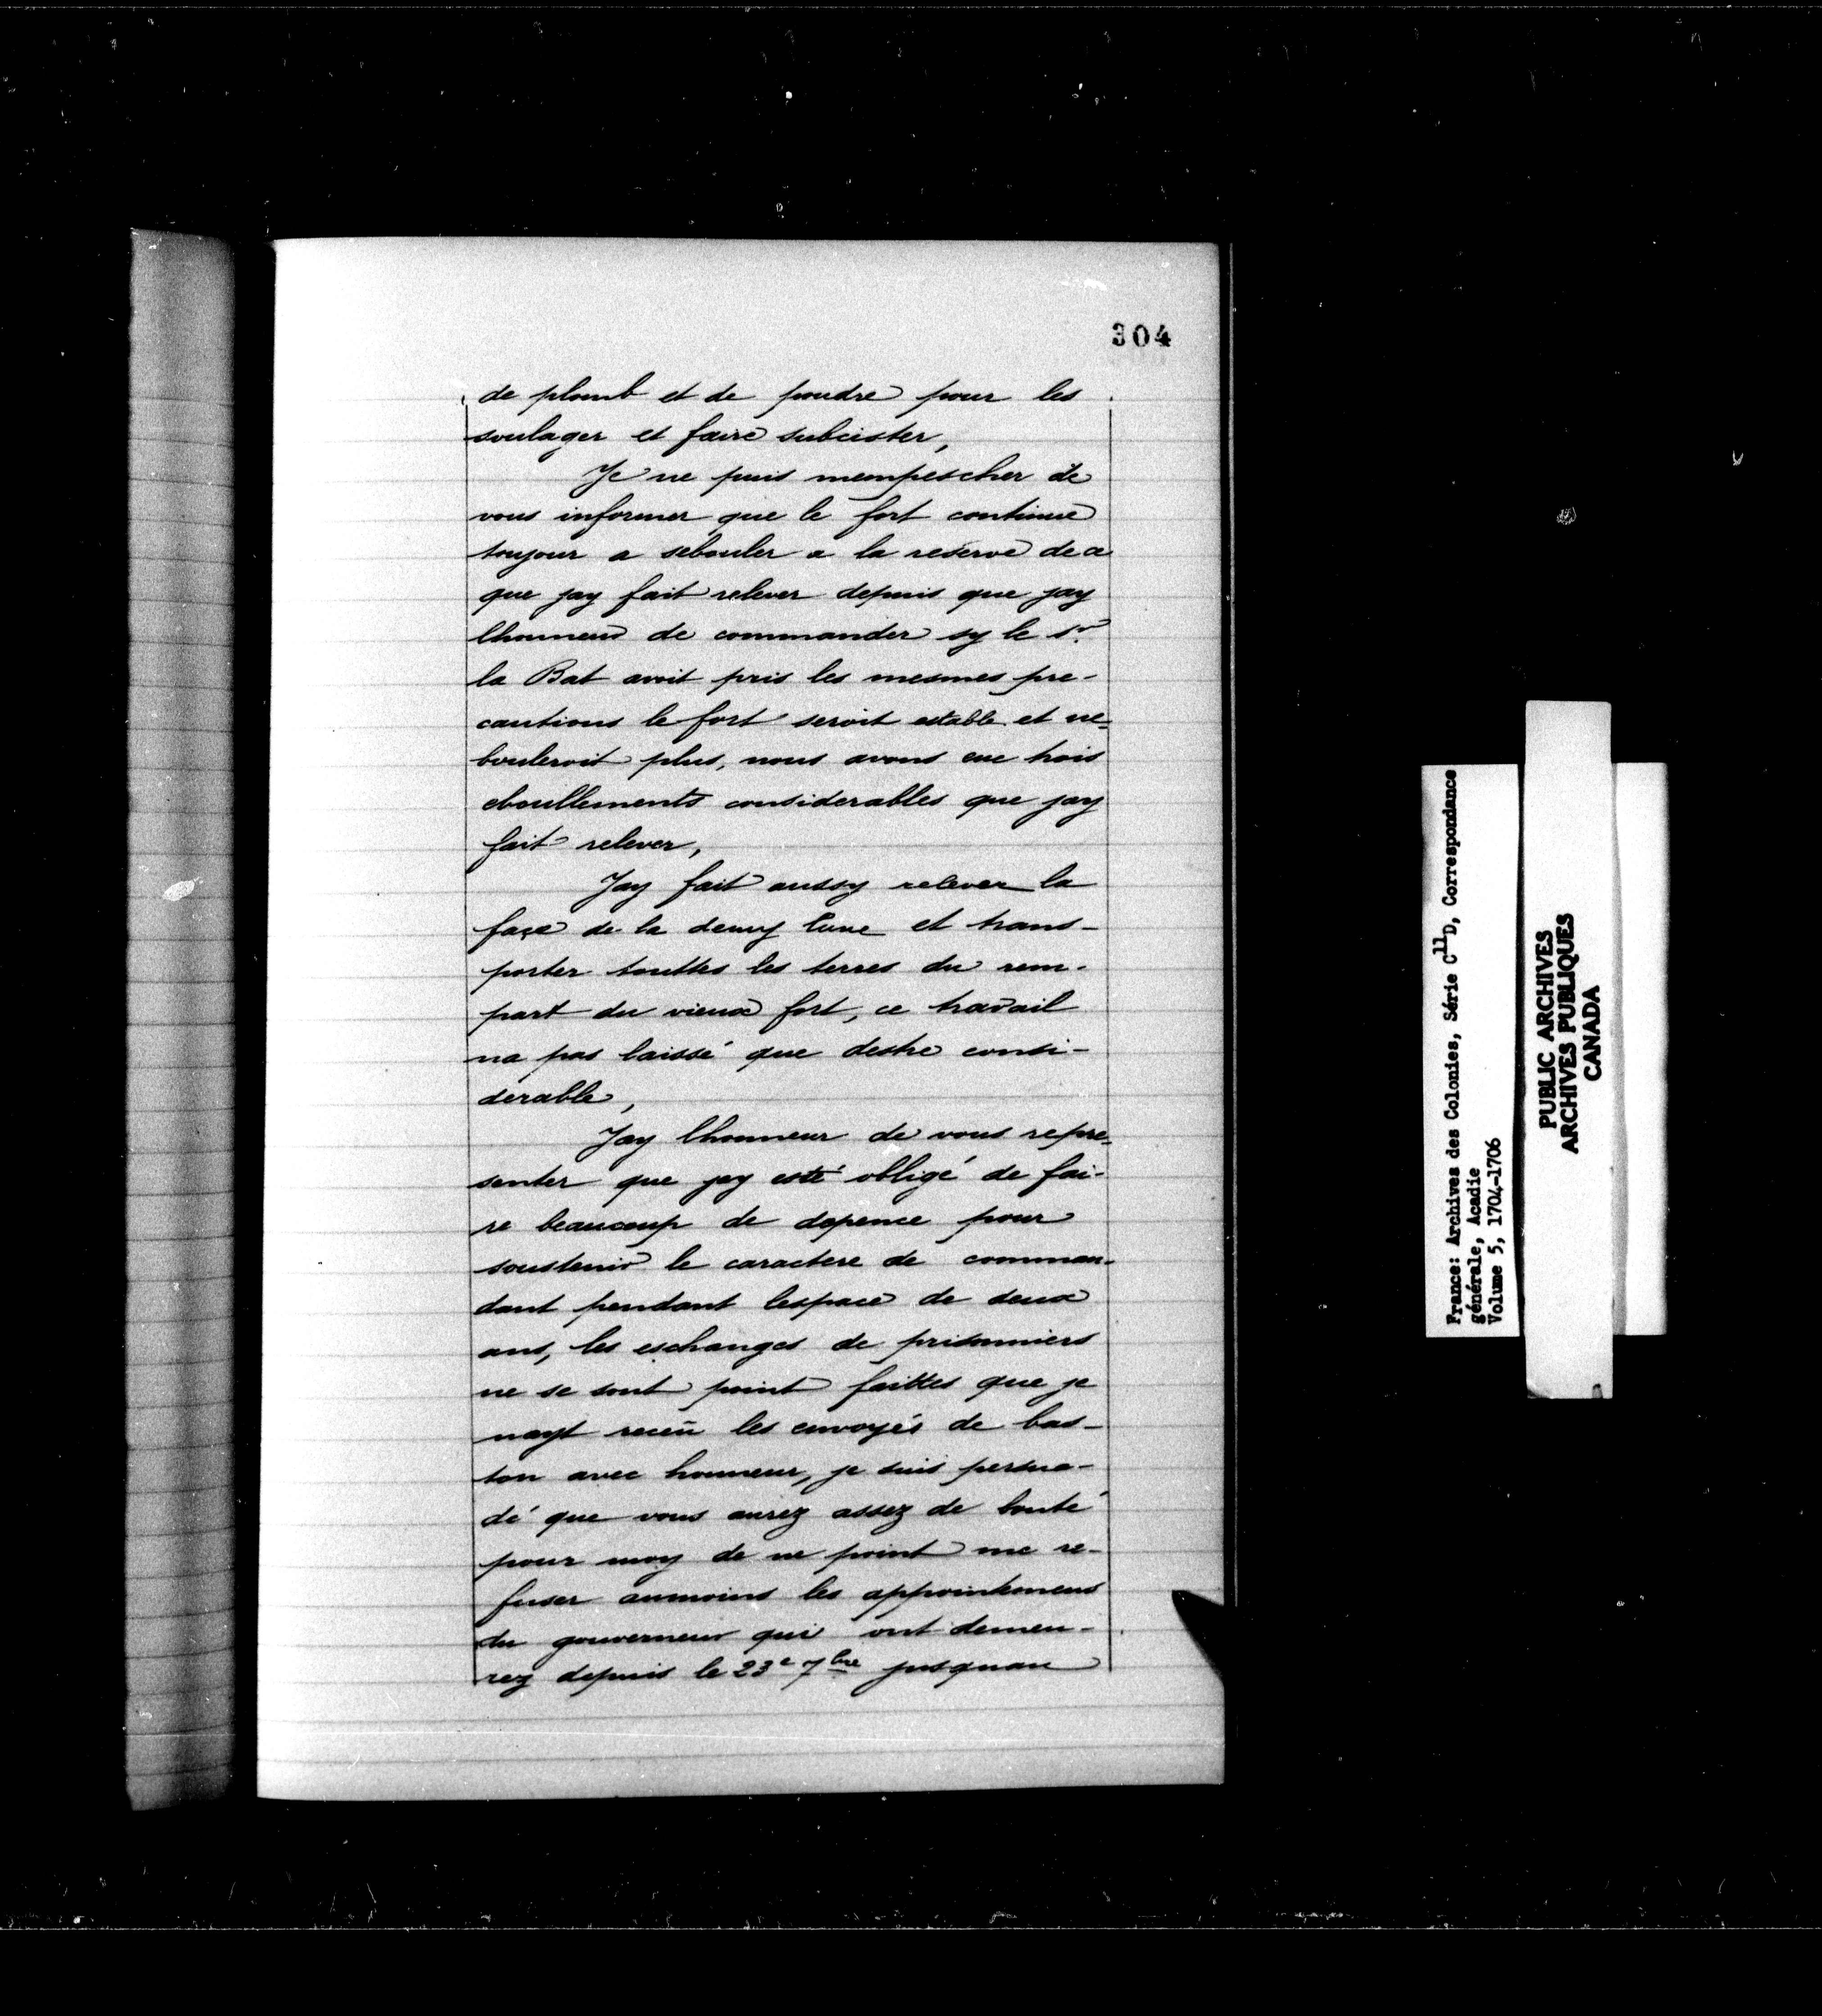 304
de plomb et de poudre pour les
soulager et faire subcister,
Je ne puis mempescher de
vous informer que le fort continue
toujour a sebouler a la reserve de ce
que jay fait relever depuis que jay
lhonneur de commander sy le sr.
la Bat avoit pris les mesmes pre-
cautions le fort seroit estable et ne-
bouleroit plus, nous avons eue trois
eboullements considerables que jay
fait relever,
Jay fait aussy relever la
façe de la demy lune et trans-
porter touttes les terres du rem-
part du vieux fort, ce travail
na pas laissé que destre consi-
derable,
Jay lhonneur de vous repre-
senter que jay esté obligé de fai-
re beaucoup de depence pour
soustenir le caractere de comman-
dant pendant lespace de deux
ans, les eschanges de prisonniers
ne se sont point faittes que je
nayt receu les envoyés de bas-
ton avec honneur, je suis persua-
dé que vous aurez assez de bonté
pour moy de ne point me re-
fuser aumoins les appointemens
du gouverneur qui ont demeu-
rez depuis le 23e 7bre jusquau
France: Archives des Colonies, Série C11D, Correspondance
générale, Acadie
Volume 5, 1704-1706
PUBLIC ARCHIVES
ARCHIVES PUBLIQUES
CANADA